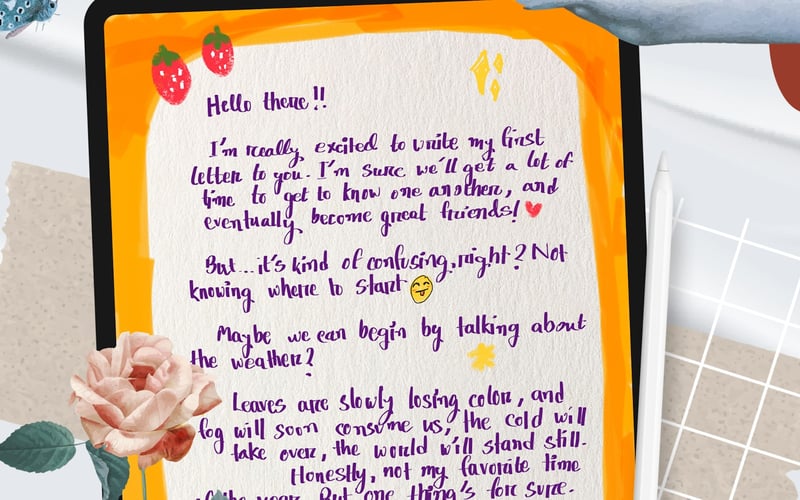 Hello there!!
I'm really excited to write my first
letter to you. I'm sure we'll get a lot of
time to get to know one another, and
eventually become great friends!
But...it's kind of confusing, right? Not
knowing where to start
Maybe we can begin by talking about
the weather?
Leaves are slowly losing color, and
fog will soon consume us, the cold will
take over, the world will stand still.
Honestly, not my favorite time
of the year. But one thing's for sure.